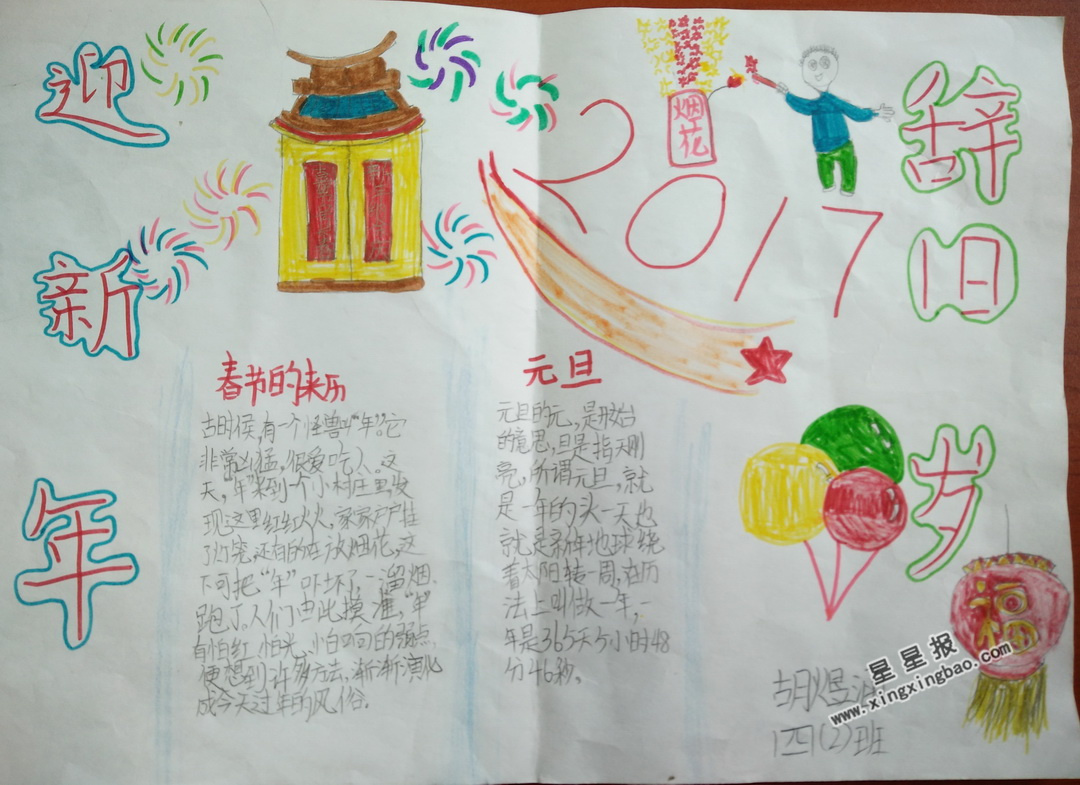 迎
新
年
2017
烟花
辞
旧
岁
春节的来历
古时候,有一个怪兽叫“年”。它
非常凶猛,很爱吃人。这
天,“年”来到一个小村庄里,发
现这里红红火火,家家户户挂
了灯笼,还有的在放烟花,这
下可把“年”吓坏了,一溜烟
跑了。人们由此摸准,“年”
有怕红、怕光、怕响的弱点,
便想到许多方法,渐渐演化
成今天过年的风俗。
元旦
元旦的元,是开始
的意思,旦是指天刚
亮,所谓元旦,就
是一年的头一天也
就是 地球绕
着太阳转一周,在历
法上叫做一年,一
年是365天5小时48
分46秒。
福
胡煜
四(2)班
星星报
www.xingxingbao.com